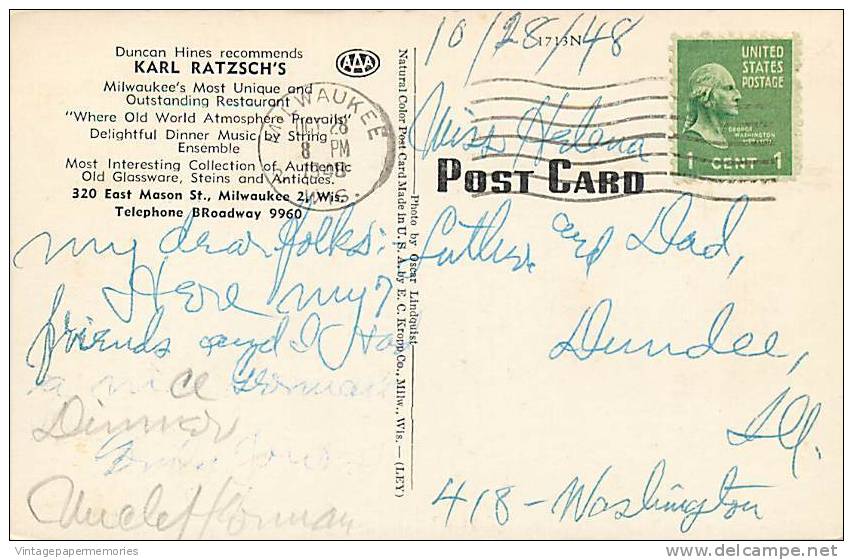 10/28/48
1713N
Duncan Hines recommends
KARL RATZSCH'S
AAA
Milwaukee's Most Unique and
Outstanding Restaurant
"Where Old World Atmosphere Prevails"
Delightful Dinner Music by String
Ensemble
Most Interesting Collection of Authentic
Old Glassware, Steins and Antiques.
320 East Mason St., Milwaukee 2, Wis.
Telephone BRoadway 9960
MILWAUKEE
28
8 PM
WIS.
UNITED
STATES
POSTAGE
GEORGE
WASHINGTON
1 CENT 1
POST CARD
Natural Color Post Card Made in U. S. A. by E. C. Kropp Co., Milw., Wis. — (LEY)
Photo by Oscar Lindquist
My dear folks:
Here my
friends and I had
a nice German
Dinner
Uncle Herman
Miss Helena
Luther and Dad,
Dundee,
Ill.
418 - Washington
Vintagepapermemories
delcampe.net